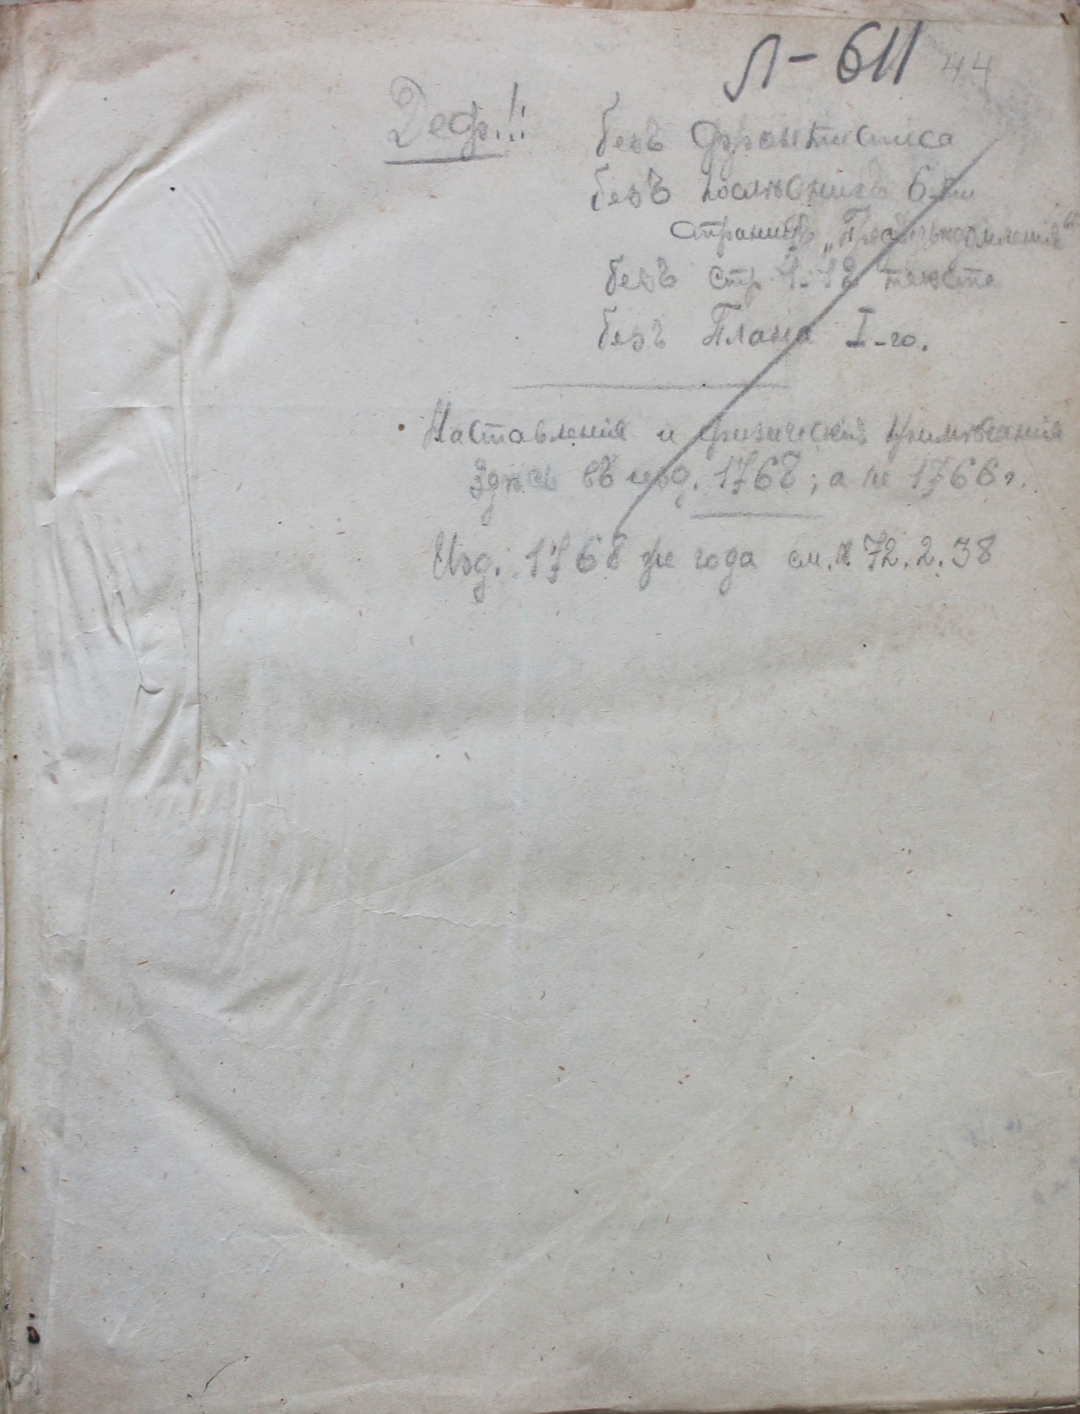 Л-611 44
Деф.!!
безъ фронтисписа
безъ послѣднихъ 6-ти
страницъ „Предувѣдомленія"
безъ стр. 1-12 текста
безъ Плана I-го.
Наставленія и физическія примѣчанія
Здѣсь въ изд. 1768; а не 1766 г.
Изд. 1768 же года см. 72.2.38